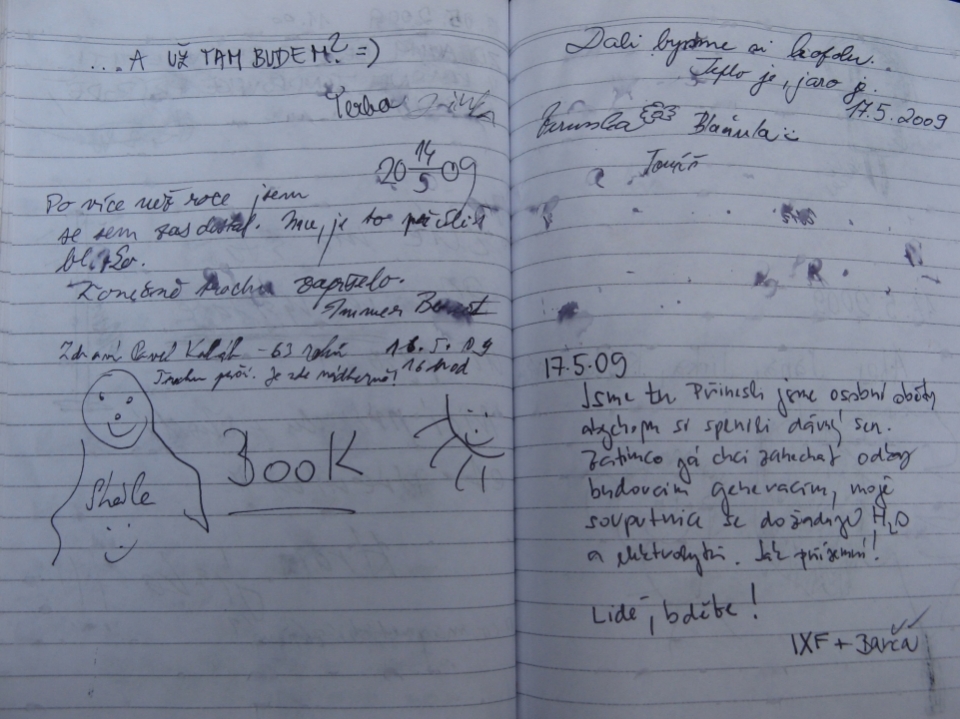 ...A UŽ TAM BUDEM? =)
Terka
20 14/5 09
Po více než roce jsem
se sem zas dostal. je to příliš
blízko.
Konečně trochu zapršelo.
Zdraví Pavel - 63 roků 16.5.09
Trochu prší. Je zde nádherně! 16 hod
BOOK
Dali bysme si kofolu..
Teplo je, jaro je.
17.5.2009
Blaňula
Tomáš
17.5.09
Jsme tu. Přinesli jsme osobní oběti
abychom si splnili dávný sen.
Zatímco já chci zanechat odkaz
budoucím generacím, moje
souputnice se dožadují H2O
a elektrolytů. Jak přízemní!
Lidé, bděte!
IXF + Barča